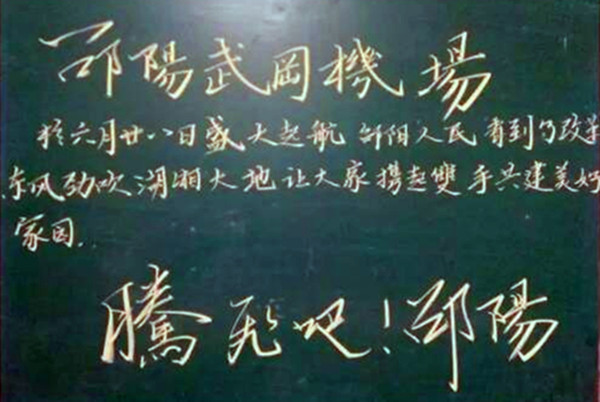 邵陽武岡機場
於六月廿八日盛大起航 邵阳人民看到了改革
东风劲吹湖湘大地 让大家携起雙手共建美好
家园..
騰飞吧！邵陽